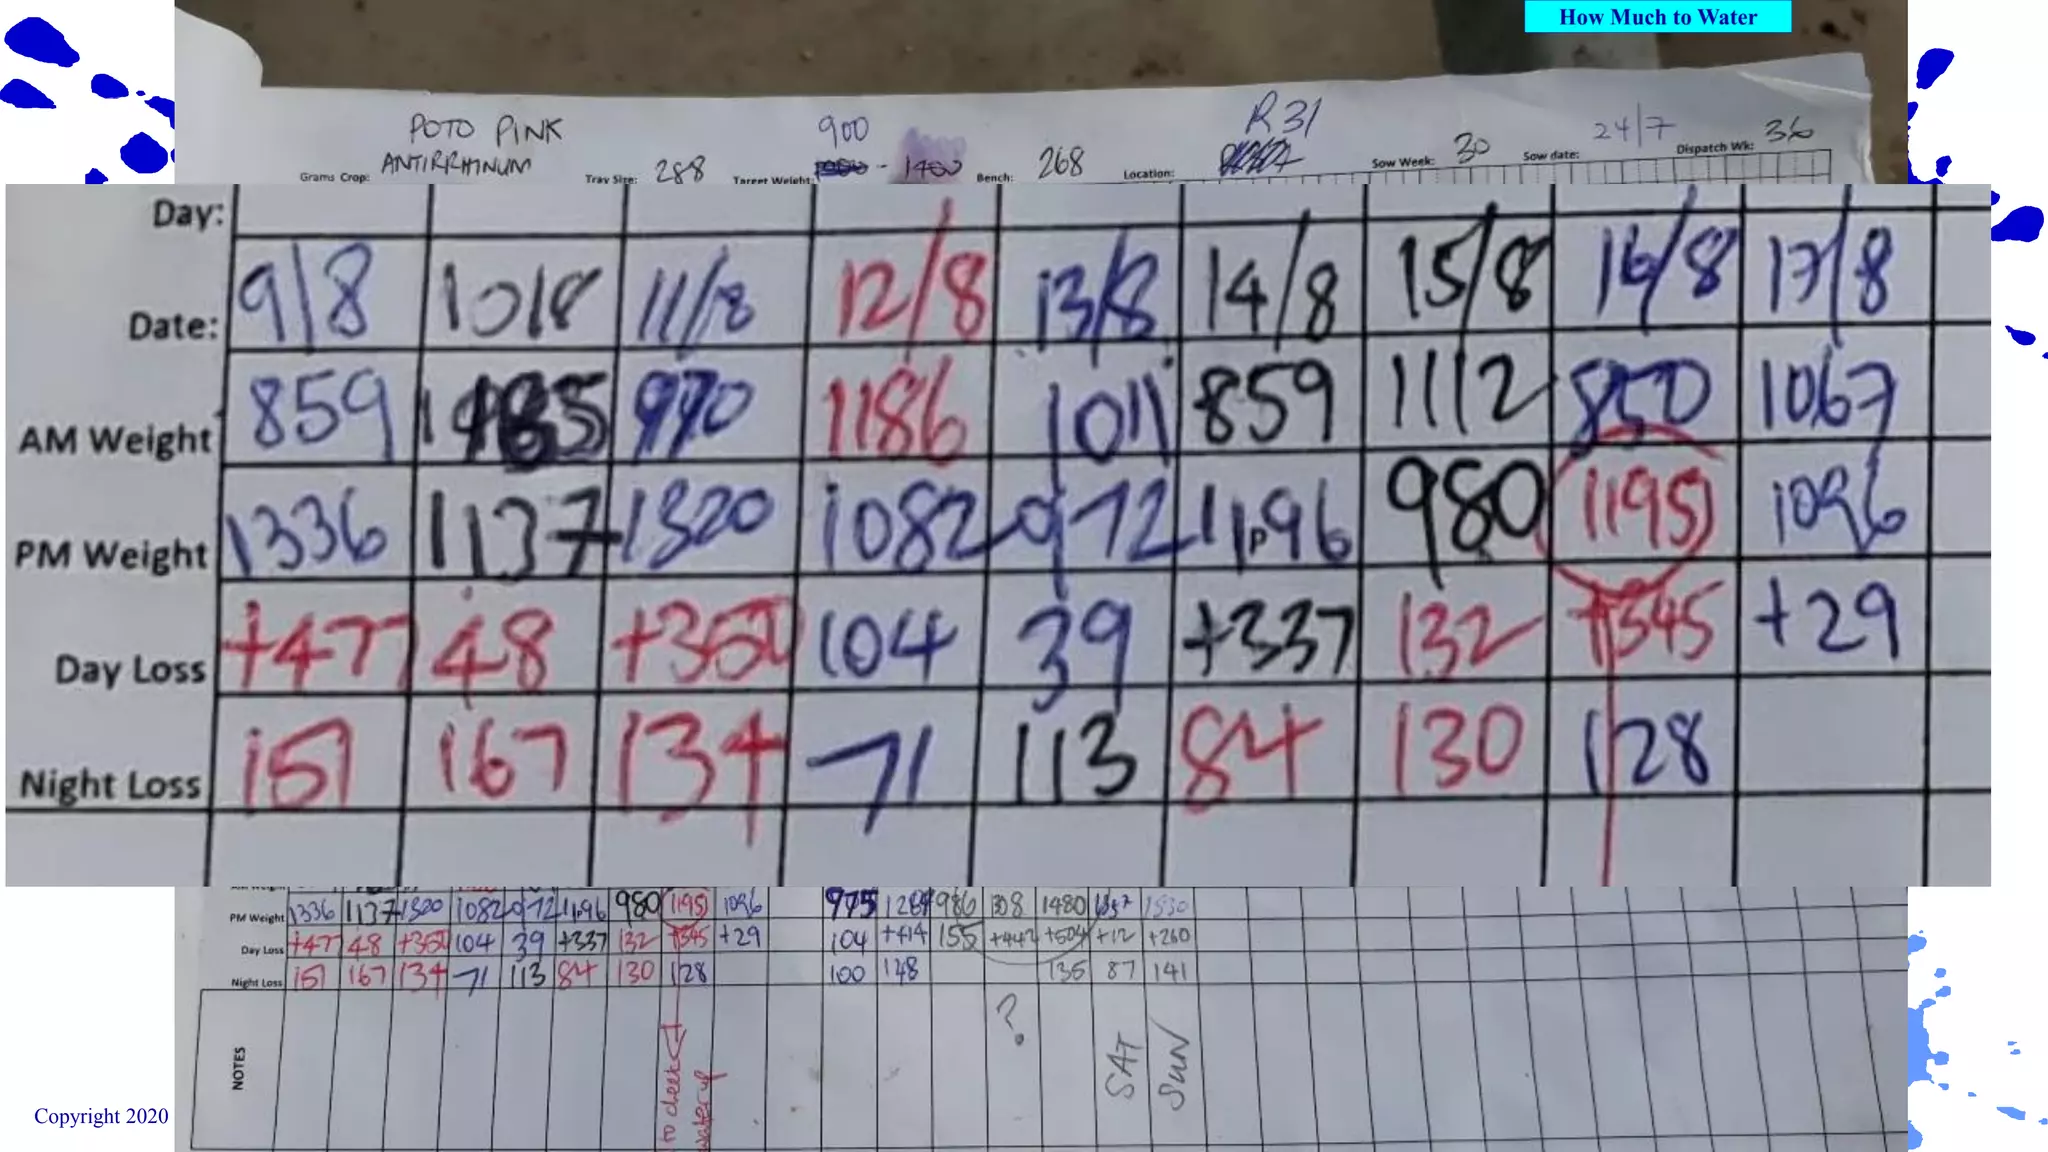 How Much to Water
POTO PINK 900 R 31 24/7
Grams Crop: ANTIRRHINUM Tray Size: 288 Target Weight: - 1400 Bench: 268 Location: Sow Week: 30 Sow date: Dispatch Wk: 36
Day:
Date: 9/8 10/8 11/8 12/8 13/8 14/8 15/8 16/8 17/8
AM Weight 859 970 1186 1011 859 1112 850 1067
PM Weight 1336 1137 1320 1082 972 1196 980 1195 1096
Day Loss +477 48 +350 104 39 +337 132 +345 +29
Night Loss 151 167 134 71 113 84 130 128
AM Weight
PM Weight 1336 1137 1320 1082 972 1196 980 1195 1096 975 986 1480
Day Loss +477 48 +350 104 39 +337 132 +345 +29 104 +414 155 +442 +504 +12 +260
Night Loss 151 167 134 71 113 84 130 128 100 148 135 87 141
NOTES to check water up ? SAT SUN
Copyright 2020